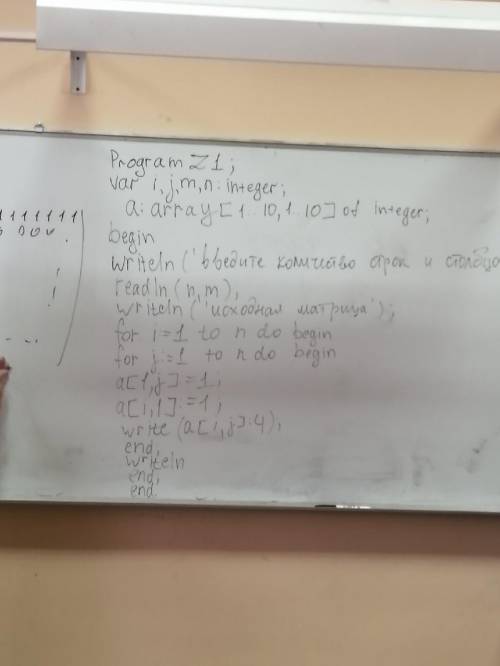 1111111
Program Z1;
var i,j,m,n: integer;
a: array [1..10,1..10] of integer;
begin
writeln ('введите количество строк и столбцо
readln (n,m);
writeln ('исходная матрица');
for i:=1 to n do begin
for j:=1 to n do begin
a[1,j]:=1;
a[i,1]:=1;
write (a[i,j]:4);
end;
writeln
end;
end.